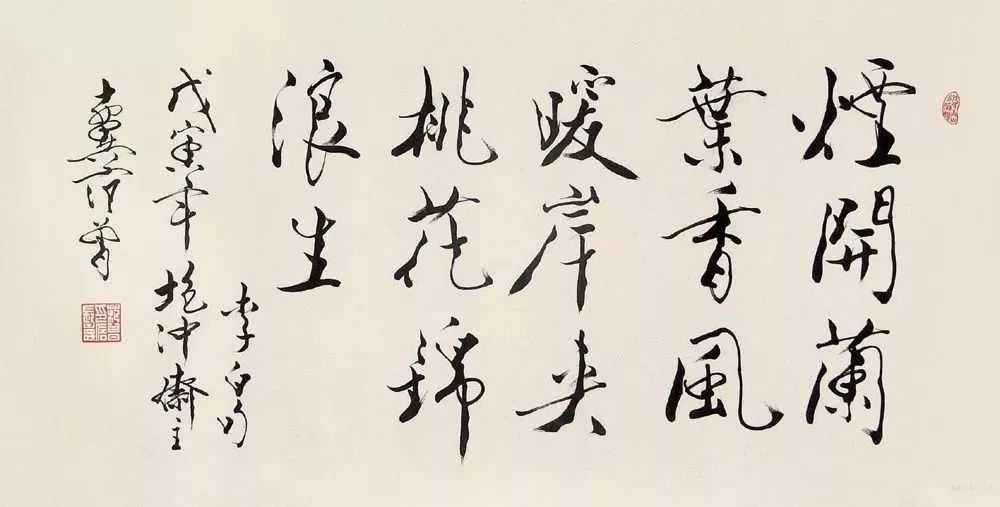 煙開蘭
葉香風
暖岸夾
桃花錦
浪生
李白句
戊寅年抱沖齋主
十翼范曾